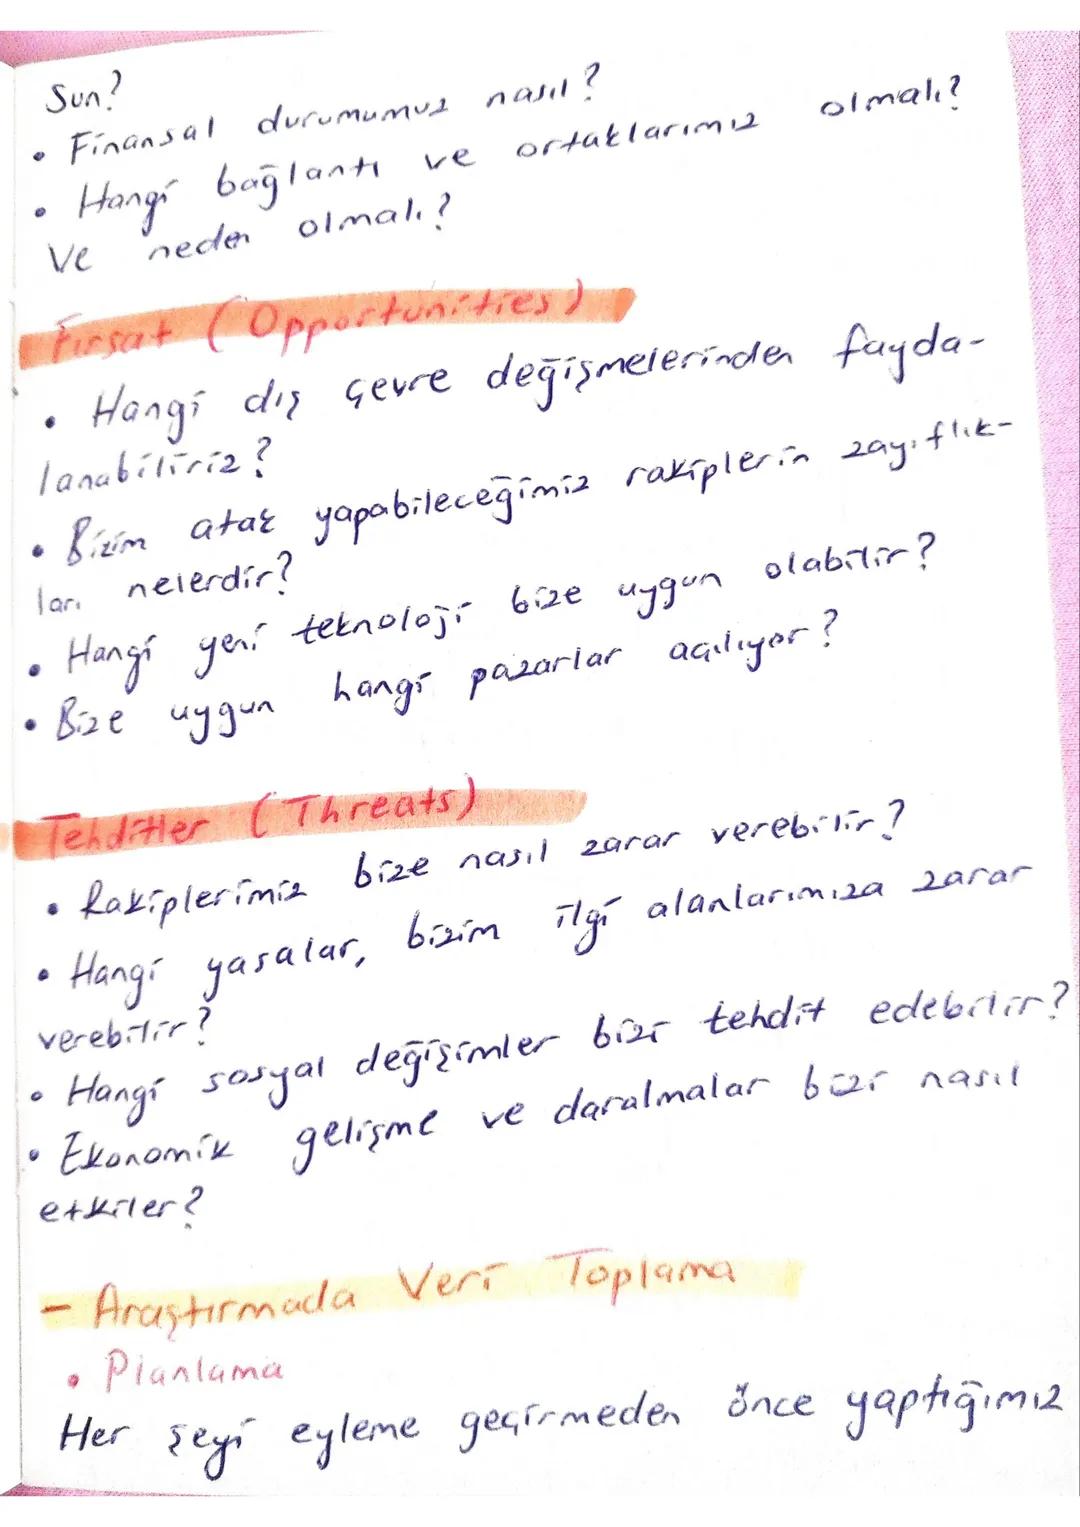 sun?
• Finansal durumumuz nasıl?
• Hangi bağlantı ve ortaklarımız olmalı?
Ve neden olmalı?
Fırsat (Opportunities)
• Hangi dış çevre değişmelerinden fayda-
lanabiliriz?
• Bizim atak yapabileceğimiz rakiplerin zayıflık-
ları nelerdir?
• Hangi yeni teknoloji bize uygun olabilir?
• Bize uygun hangi pazarlar açılıyor?
Tehditler (Threats)
• Rakiplerimiz bize nasıl zarar verebilir?
• Hangi yasalar, bizim ilgi alanlarımıza zarar
verebilir?
• Hangi sosyal değişimler bizi tehdit edebilir?
• Ekonomik gelişme ve daralmalar bizi nasıl
etkiler?
- Araştırmada Veri Toplama
• Planlama
Her şeyi eyleme geçirmeden önce yaptığımız